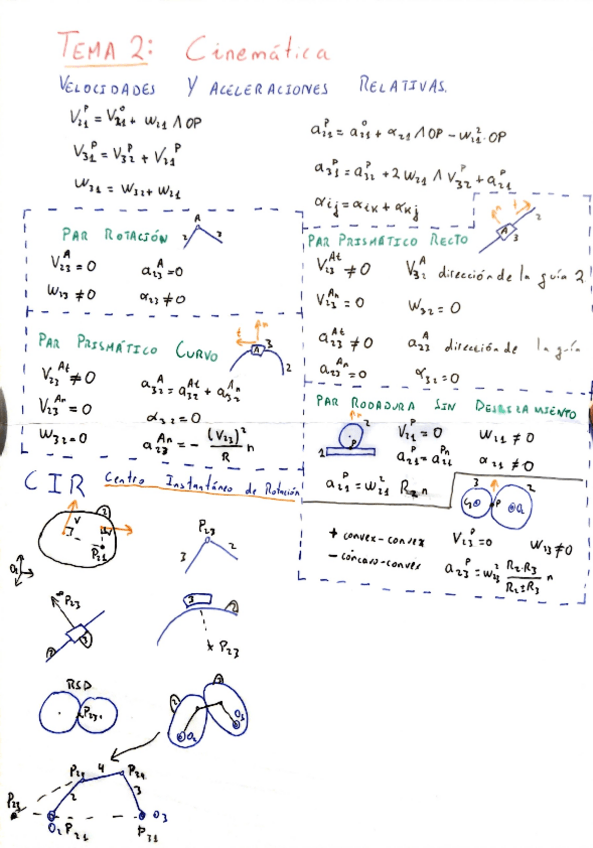 TEMA 2: Cinemática
VELOCIDADES Y ACELERACIONES RELATIVAS.
V₂₁ᴾ = V₂₁⁰ + w₂₁ ∧ OP
V₃₁ᴾ = V₃₂ᴾ + V₂₁ᴾ
w₃₁ = w₃₂ + w₂₁
a₂₁ᴾ = a₂₁⁰ + α₂₁ ∧ OP − w₂₁² · OP
a₃₁ᴾ = a₃₂ᴾ + 2 w₂₁ ∧ V₃₂ᴾ + a₂₁ᴾ
αij = αik + αkj
PAR ROTACIÓN
A
2 3
V₂₃ᴬ = 0 a₂₃ᴬ = 0
w₂₃ ≠ 0 α₂₃ ≠ 0
PAR PRISMÁTICO RECTO
n t 2
A 3
V₂₃ᴬᵗ ≠ 0 V₃₂ᴬ dirección de la guía 2
V₂₃ᴬⁿ = 0 w₃₂ = 0
a₂₃ᴬᵗ ≠ 0 a₂₃ᴬ dirección de la guía
a₂₃ᴬⁿ = 0 α₃₂ = 0
PAR PRISMÁTICO CURVO
n
t A 3
2
V₂₃ᴬᵗ ≠ 0 a₃₂ᴬ = a₃₂ᴬᵗ + a₃₂ᴬⁿ
V₂₃ᴬⁿ = 0 α₃₂ = 0
w₃₂ = 0 a₂₃ᴬⁿ = − (V₂₃)²/R n
PAR RODADURA SIN DESLIZAMIENTO
n 2
P
1
V₂₁ᴾ = 0 w₂₁ ≠ 0
a₂₁ᴾ = a₂₁ᴾⁿ α₂₁ ≠ 0
a₂₁ᴾ = w₂₁² R₂ n
3 2
O₃ P O₂
+ convex-convex V₂₃ᴾ = 0 w₂₃ ≠ 0
− cóncavo-convex a₂₃ᴾ = w₂₃² R₂·R₃/R₂±R₃ n
CIR Centro Instantáneo de Rotación
2
V
P₂₁
P₂₃
3 2
P₂₃
2 3
3 2
P₂₃
RSD
P₂₃
2 3
O₂ O₃
P₂₄ 4 P₃₄
P₂₃ 2 3
O₂ P₂₁ P₃₁ O₃